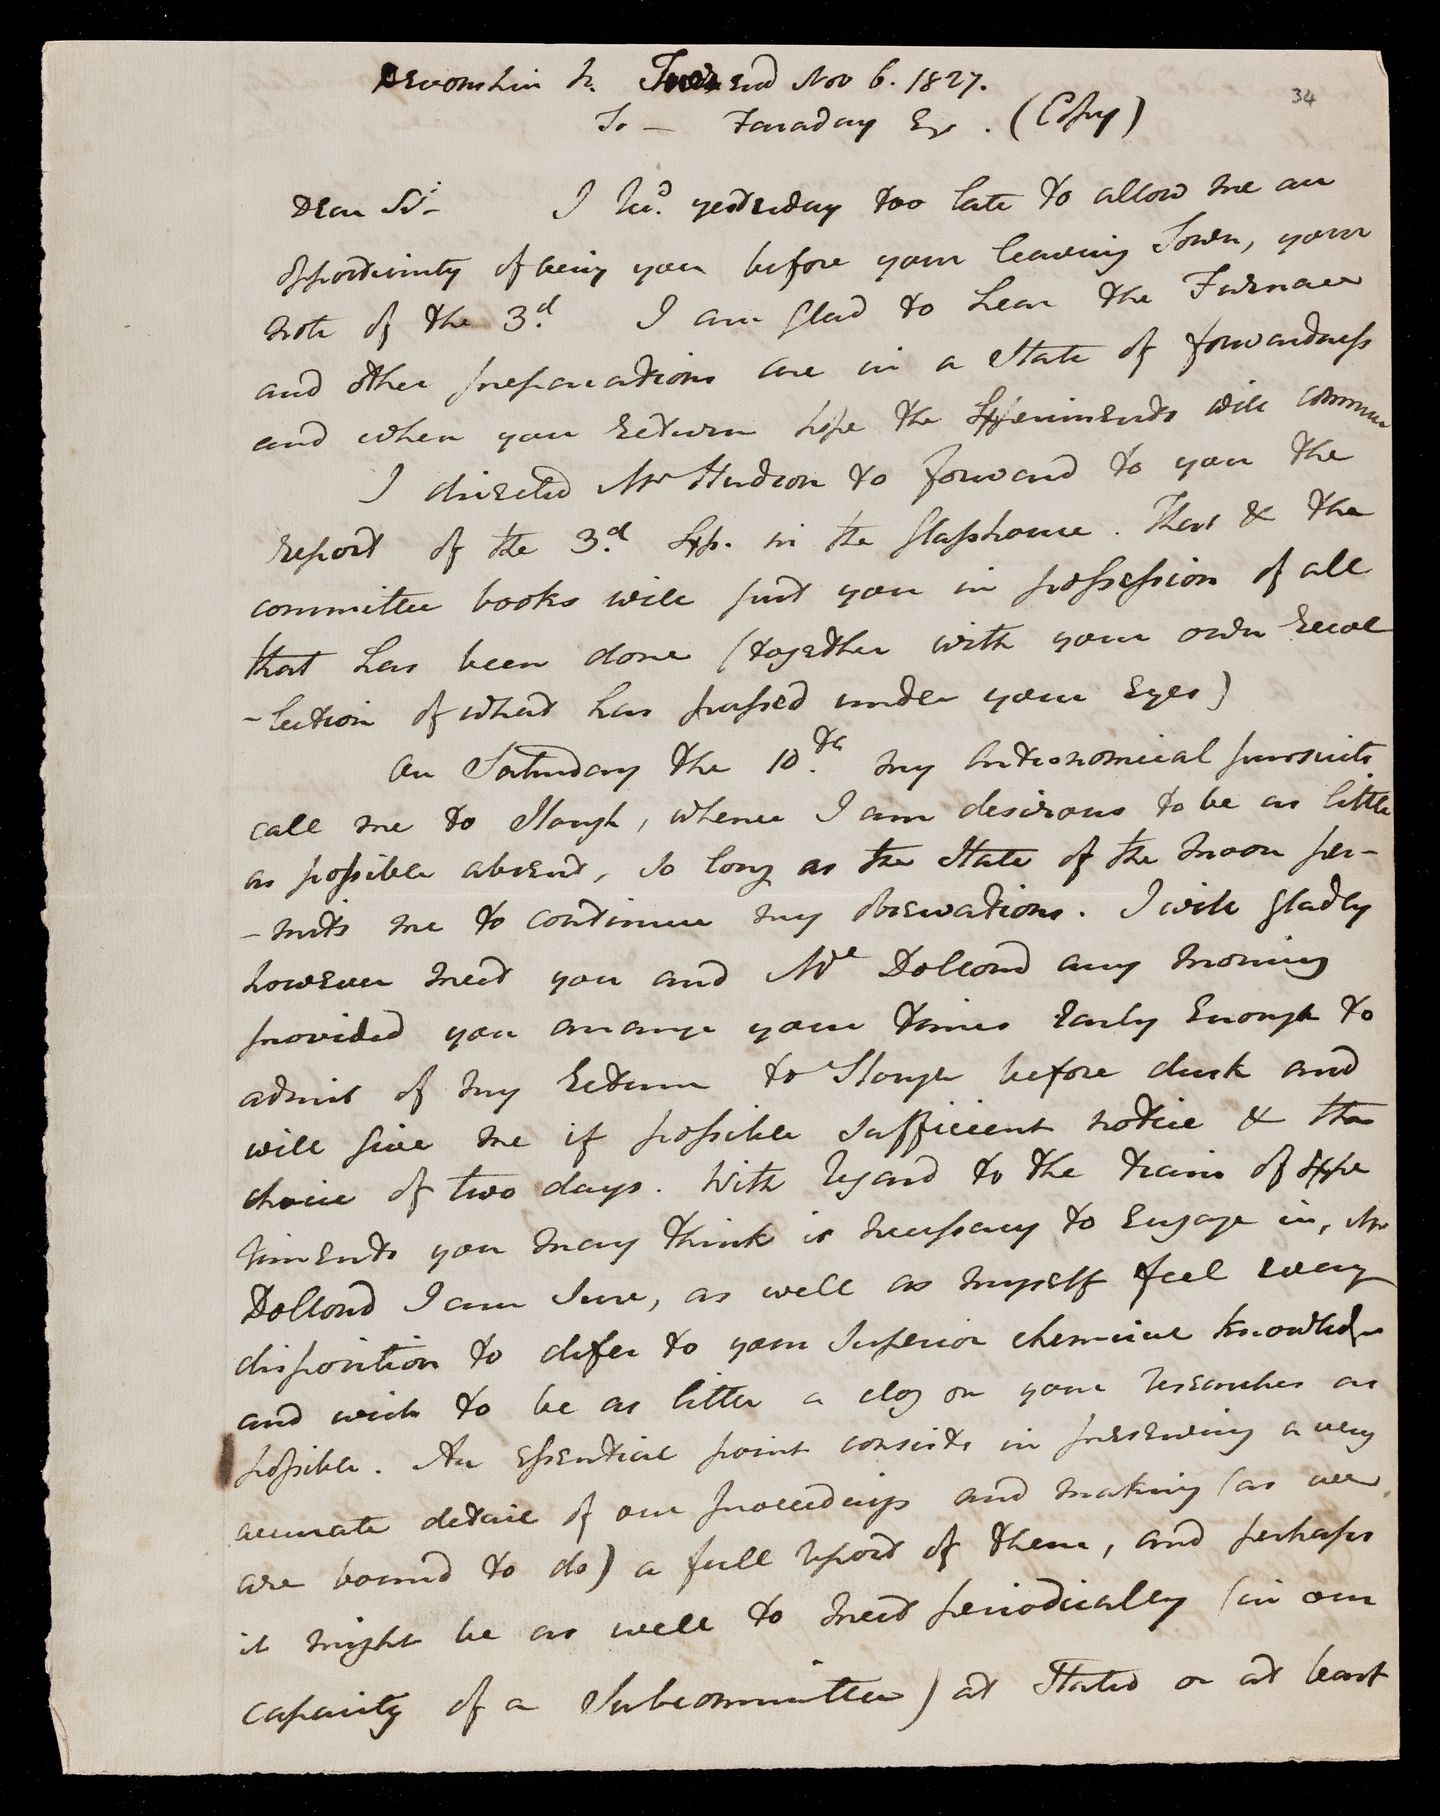 Devonshire St. Nov 6. 1827.
34
To — Faraday Esqr. (Copy)
Dear Sir I recd. yesterday too late to allow me an
opportunity of seeing you before your leaving Town, your
note of the 3d. I am glad to hear the Furnace
and other preparations are in a State of forwardness
and when you return hope the Experiments will commence
I directed Mr Hudson to forward to you the
report of the 3d. Exp. in the Glasshouse. That & the
committee books will put you in possession of all
that has been done (together with your own recol
-lection of what has passed under your Eyes)
On Saturday the 10th. my astronomical pursuits
call me to Slough, whence I am desirous to be as little
as possible absent, so long as the State of the Moon per-
-mits me to continue my observations. I will gladly
however meet you and Mr Dollond any morning
provided you arrange your times early enough to
admit of my return to Slough before dusk and
will give me if possible sufficient notice & the
choice of two days. With regard to the train of Expe
riments you may think it necessary to engage in, Mr
Dollond I am sure, as well as myself feel every
disposition to defer to your superior chemical knowledge
and wish to be as little a clog on your researches as
possible. An essential point consists in preserving a very
accurate detail of our proceedings and making (as we
are bound to do) a full report of them, and perhaps
it might be as well to meet periodically (in our
capacity of a Subcommittee) at Stated or at least